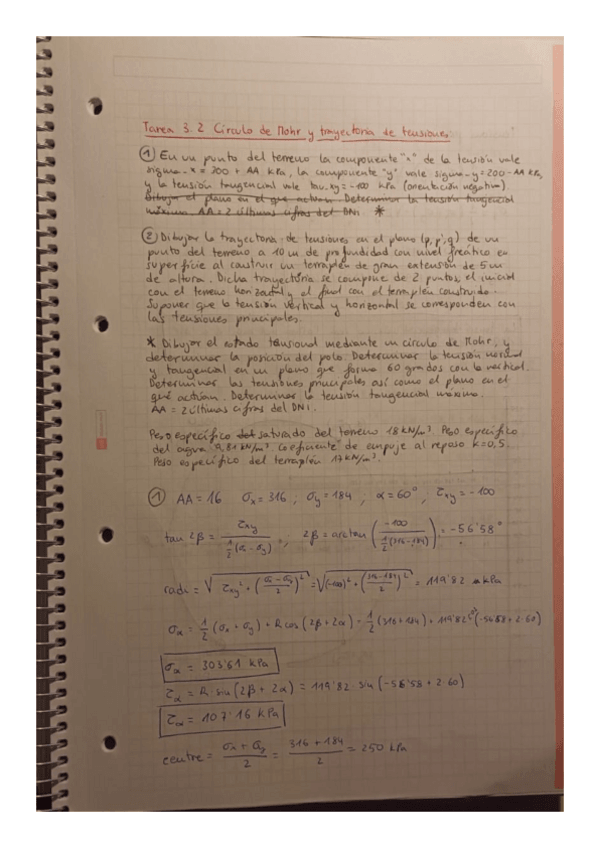 Tarea 3.2 Circulo de Mohr y trayectoria de tensiones
① En un punto del terreno la componente "x" de la tensión vale
sigma-x = 300 + AA kPa, la componente "y" vale sigma-y = 200 - AA kPa,
y la tensión tangencial vale tau,xy = -100 kPa (orientación negativa)
Dibujar el plano en el que actúan. Determinar la tensión tangencial
máxima. AA = 2 últimas cifras del DNI. *
② Dibujar la trayectoria de tensiones en el plano (p, p'; q) de un
punto del terreno a 10 m de profundidad con nivel freático en
superficie al construir un terraplén de gran extensión de 5 m
de altura. Dicha trayectoria se compone de 2 puntos, el inicial
con el terreno horizontal y el final con el terraplén construido.
Suponer que la tensión vertical y horizontal se corresponden con
las tensiones principales.
* Dibujar el estado tensional mediante un círculo de Mohr, y
determinar la posición del polo. Determinar la tensión normal
y tangencial en un plano que forma 60 grados con la vertical.
Determinar las tensiones principales así como el plano en el
que actúan. Determinar la tensión tangencial máxima.
AA = 2 últimas cifras del DNI.
Peso específico del saturado del terreno 18 kN/m³. Peso específico
del agua 9,81 kN/m³. Coeficiente de empuje al reposo K=0,5.
Peso específico del terraplén 17 kN/m³
① AA = 16 σx = 316 ; σy = 184 , α = 60° , τxy = -100
tan 2β = τxy / ½(σx - σy) , 2β = arctan (-100 / ½(316-184)) = -56'58°
radi = √(τxy² + ((σx - σy)/2)²) = √((-100)² + ((316-184)/2)²) = 119'82 kPa
σα = ½ (σx + σy) + R cos (2β + 2α) = ½ (316+184) + 119'82 cos (-56'58 + 2·60)
σα = 303'61 kPa
τα = R · sin (2β + 2α) = 119'82 · sin (-56'58 + 2·60)
τα = 107'16 kPa
centre = (σx + σy)/2 = (316 + 184)/2 = 250 kPa